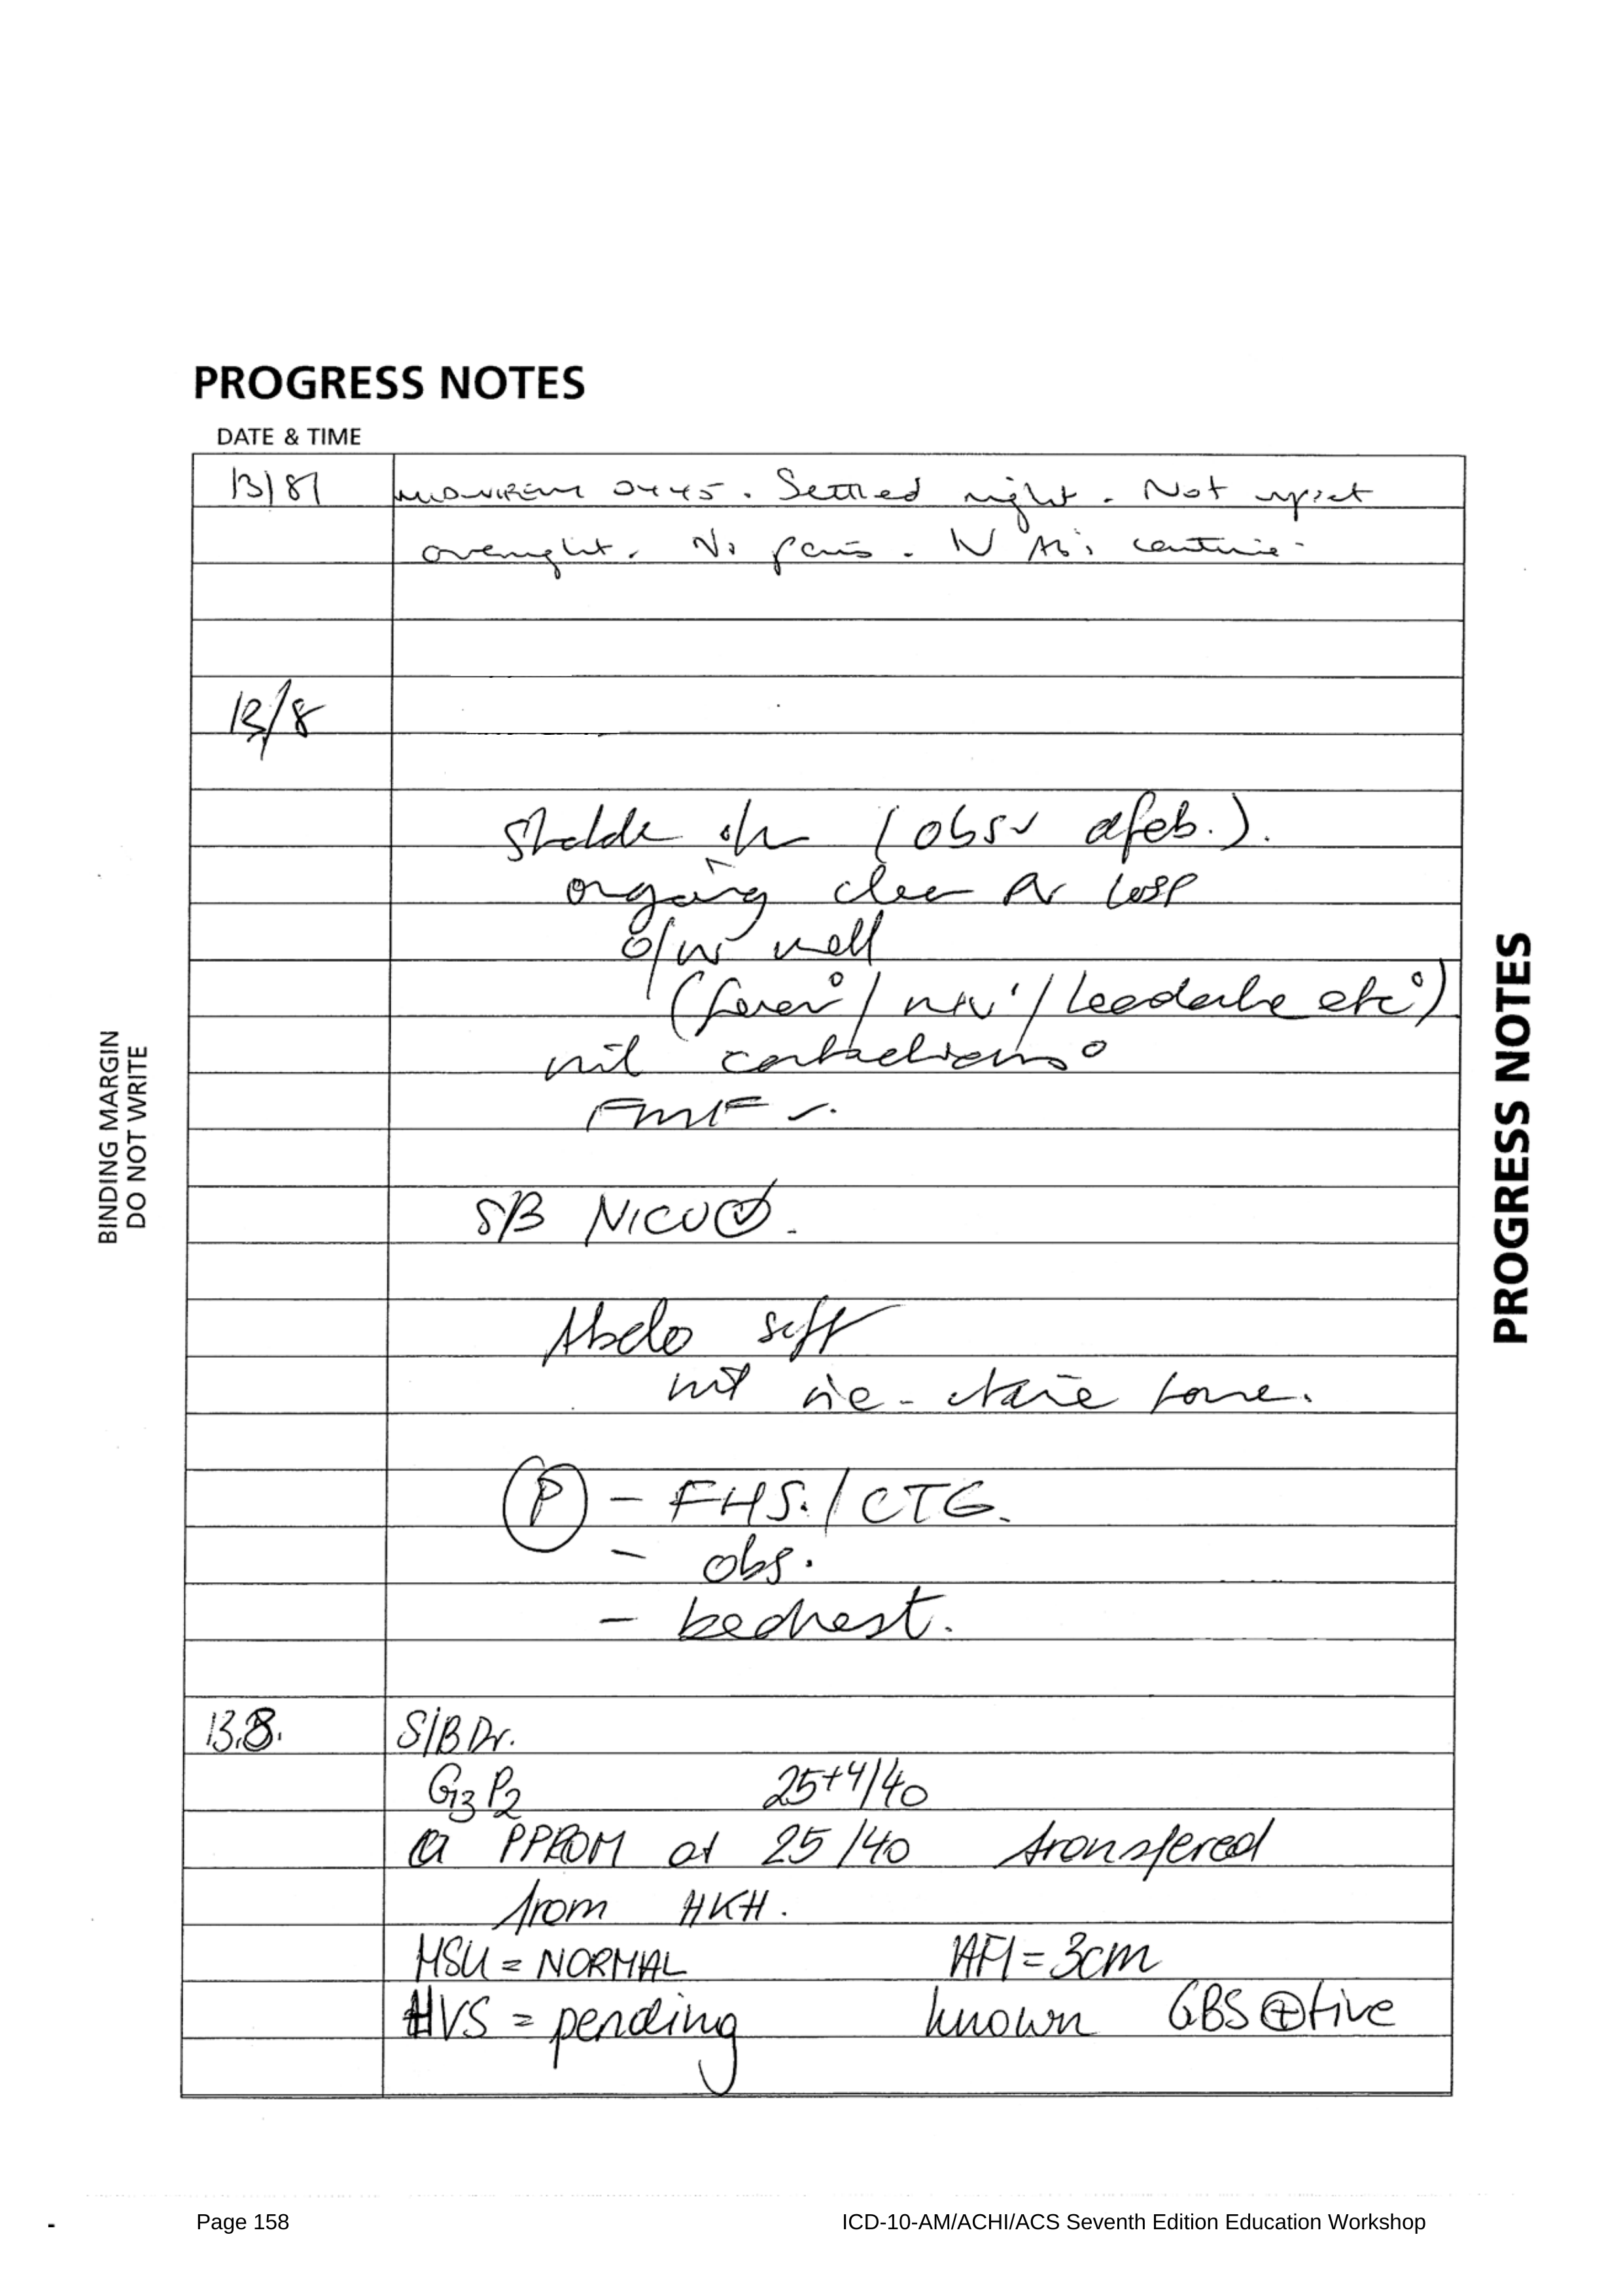 PROGRESS NOTES
DATE & TIME
13/8 MIDWIFERY 0445. Settled night. Not upset
overnight. No pains. IV ABs continue.
13/8
Stable o/n (obs✓ afeb.).
ongoing clear PV loss
o/w well
(fever° / n+v° / headache etc°)
nil contractions°
FMF ✓.
S/B NICU ✓.
Abdo soft
nil uterine tone.
(P) - FHS. / CTG.
- obs.
- bedrest.
13.8. S/B Dr.
G3 P2 25+4/40
PPROM at 25/40 transfered
from HKH.
MSU = NORMAL AFI = 3cm
HVS = pending known GBS ⊕tive
BINDING MARGIN
DO NOT WRITE
PROGRESS NOTES
Page 158 ICD-10-AM/ACHI/ACS Seventh Edition Education Workshop